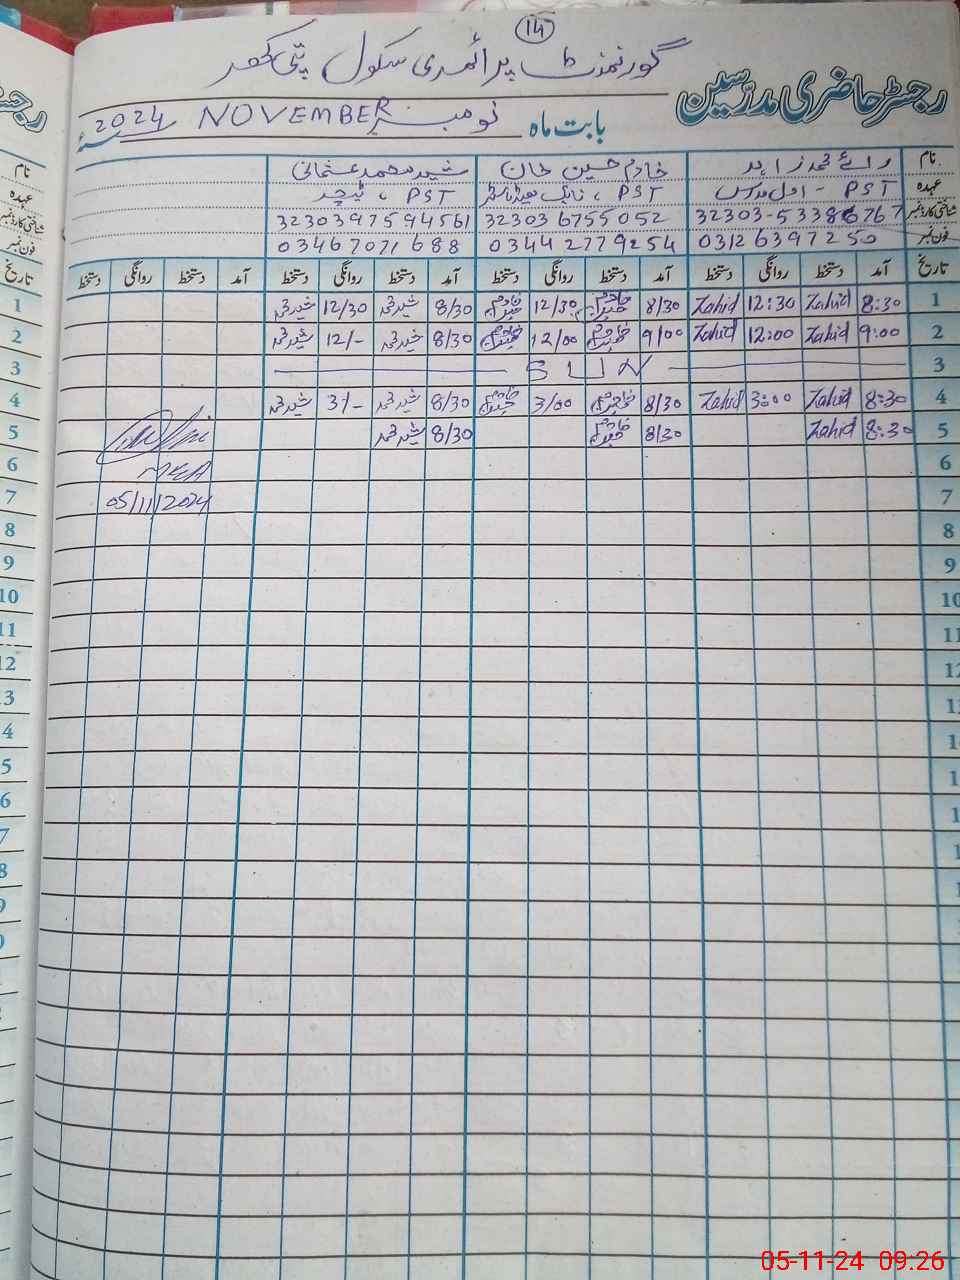 14
گورنمنٹ پرائمری سکول پتی کھر
رجسٹر حاضری مدرّسین
بابت ماہ نومبر NOVEMBER 2024ء
نام محمد زاہد خادم حسین خان شبیر محمد عثمانی
عہدہ PST - اول مدرس PST ، نائب ہیڈ ماسٹر PST ، ٹیچر
شناختی کارڈ نمبر 32303-5338676 7 32303 6755052 3230397594561
فون نمبر 03126397250 03442779254 03467071688
تاریخ آمد دستخط روانگی دستخط آمد دستخط روانگی دستخط آمد دستخط روانگی دستخط آمد دستخط روانگی دستخط
1 8:30 Zahid 12:30 Zahid 8/30 خادم حسین 12/30 خادم حسین 8/30 شبیر محمد 12/30 شبیر محمد
2 9:00 Zahid 12:00 Zahid 9/00 خادم حسین 12/00 خادم حسین 8/30 شبیر محمد 12/- شبیر محمد
3 SUN
4 8:30 Zahid 3:00 Zahid 8/30 خادم حسین 3/00 خادم حسین 8/30 شبیر محمد 3/- شبیر محمد
5 8:30 Zahid 8/30 خادم حسین 8/30 شبیر محمد
6 MEA
7 05/11/2024
8
9
10
11
12
05-11-24 09:26